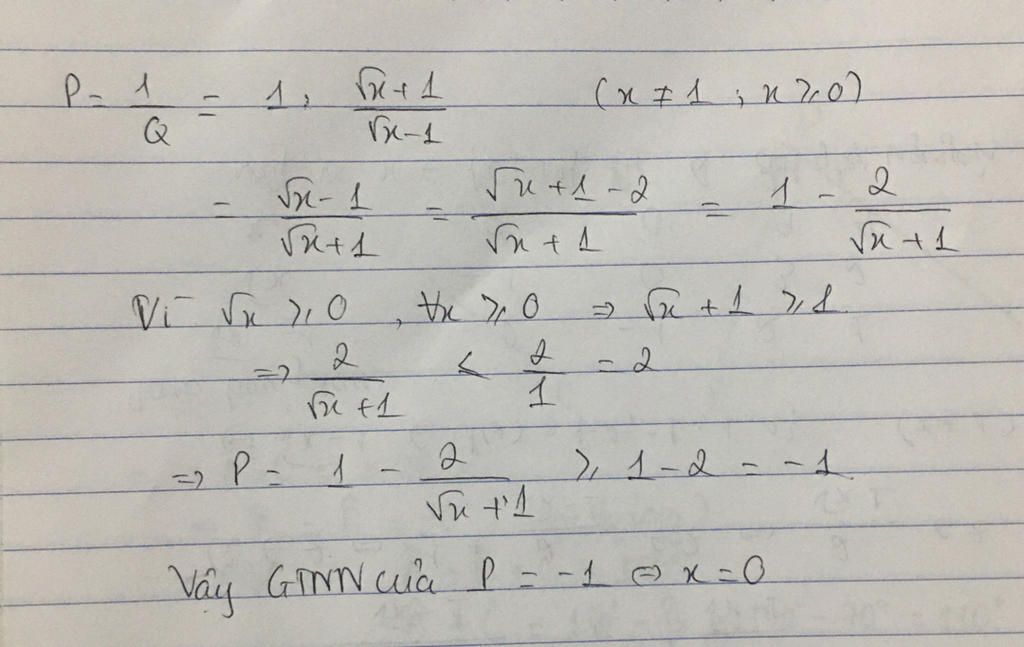 P = 1/Q = 1 : (√x + 1)/(√x - 1) (x ≠ 1 ; x ≥ 0)
= (√x - 1)/(√x + 1) = (√x + 1 - 2)/(√x + 1) = 1 - 2/(√x + 1)
Vì √x ≥ 0 , ∀x ≥ 0 ⇒ √x + 1 ≥ 1
⇒ 2/(√x + 1) ≤ 2/1 = 2
⇒ P = 1 - 2/(√x + 1) ≥ 1 - 2 = -1
Vậy GTNN của P = -1 ⇔ x = 0